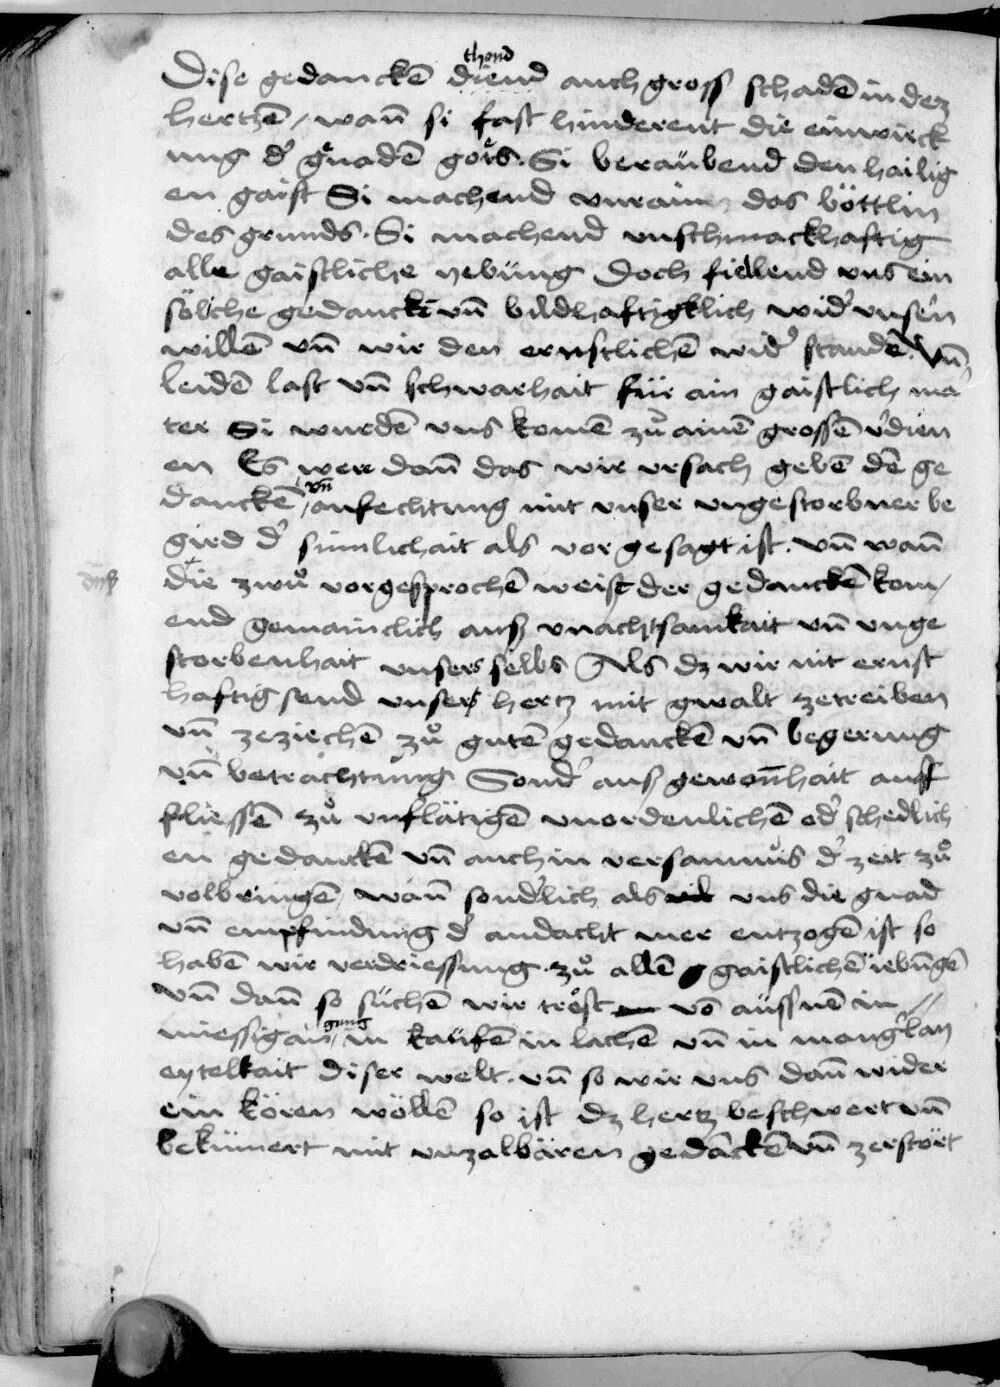 thond
Dise gedancken̄ diend auch gross schadē in dez
hertzē / wan̄ si fast hinderent die einwirck
ung d' gnadē gotz. Si beraubend den hailig
en gaist Si machend unrain das böttlin
des grunds. Si machend unschmackhaftig
alle gaistliche uebüng Doch fiellend uns ein
sölche gedancki un̄ bildhaftigklich wid' unsern
willē vn̄ wir den ernstlichē wid' standē. Vn̄
leidē last vn̄ schwarhait für ain gaistlich ma
ter Si wurdē uns komē zů ainē grossē v'dien
en Es were dan̄ das wir ursach gebē dē ge
danckē / vn̄ anfechtung mit unser ungestorbner be
gird d' sinnlichait als vor gesagt ist. vn̄ wan̄
die zwů vorgesprochē weist der gedanckē kom/
end gemainclich auss unachtsamkait vn̄ unge
storbenhait unsers selbs Als dz wir nit ernst
haftig send unsers hertz mit gwalt zetreiben
vn̄ zeziechē zů gutē gedanckē vn̄ begerung
vn̄ betrachtung Sond' auss gewon̄hait auss
fliessē zů unflätigē unordenlichē od' schedlich
en gedanckē vn̄ auch in versamnus d' zeit zů
volbringē / wan̄ sond'lich als uns die gnad
vn̄ empfindung d' andacht mer entzogē ist so
habē wir verdriessung. zů allē gaistlichē iebungē
vn̄ dan̄ so süchē wir trost vō aussnē in //
miessigangung / in kaufē in lachē vn̄ in mang'lay
eytelkait diser welt. vn̄ so wir uns dan̄ wider
ein kören wöllē so ist dz hertz beschwert vn̄
bekümert mit unzalbären gedanckē vn̄ zerstört